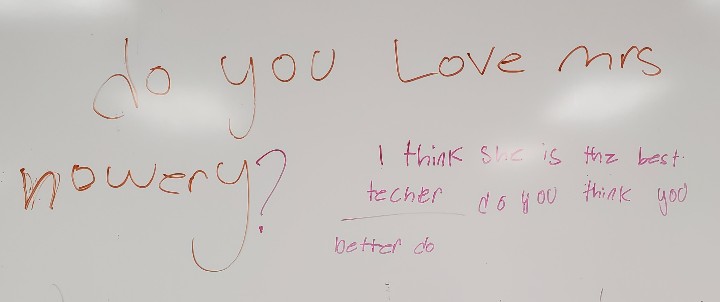 do you Love mrs
nowery?
I think she is the best.
techer do you think you
better do